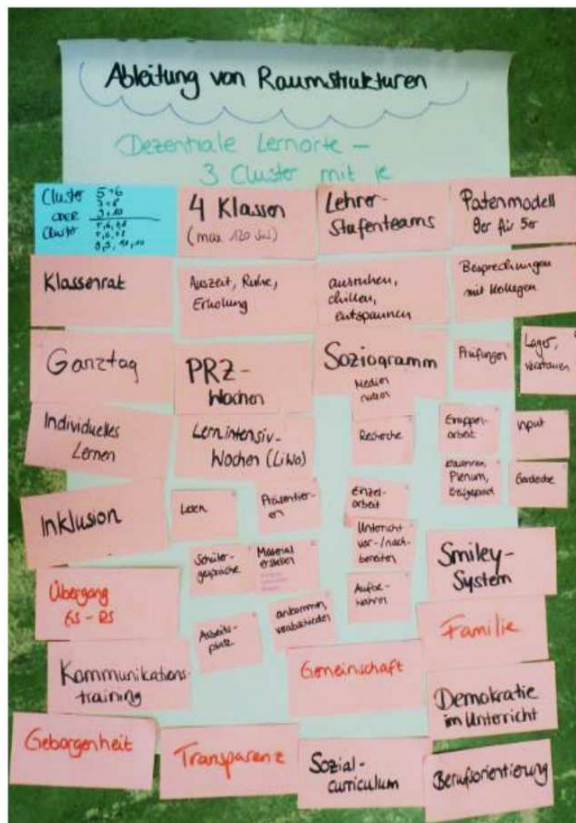 Ableitung von Raumstrukturen
Dezentrale Lernorte –
3 Cluster mit je
Cluster 5+6
ODER
Cluster
4 Klassen
(max. 120 SuS)
Lehrer-
Stufenteams
Patenmodell
9er für 5er
Klassenrat
Auszeit, Ruhe,
Erholung
ausruhen,
chillen,
entspannen
Besprechungen
mit Kollegen
Ganztag
PRZ-
Wochen
Soziogramm
Medien
nutzen
Prüfungen
Lager,
verstauen
Individuelles
Lernen
Lernintensiv-
Wochen (LiWo)
Recherche
Gruppen-
arbeit
Input
Inklusion
Lesen
Präsentier-
en
Einzel-
arbeit
Klassenrat,
Plenum,
Garderobe
Schüler-
gespräche
Material
erstellen
Unterricht
vor-/nach-
bereiten
Smiley-
System
Übergang
GS - RS
Arbeits-
platz
ankommen,
verabschieden
Aufbe-
wahren
Familie
Kommunikations-
training
Gemeinschaft
Demokratie
im Unterricht
Geborgenheit
Transparenz
Sozial-
curriculum
Berufsorientierung